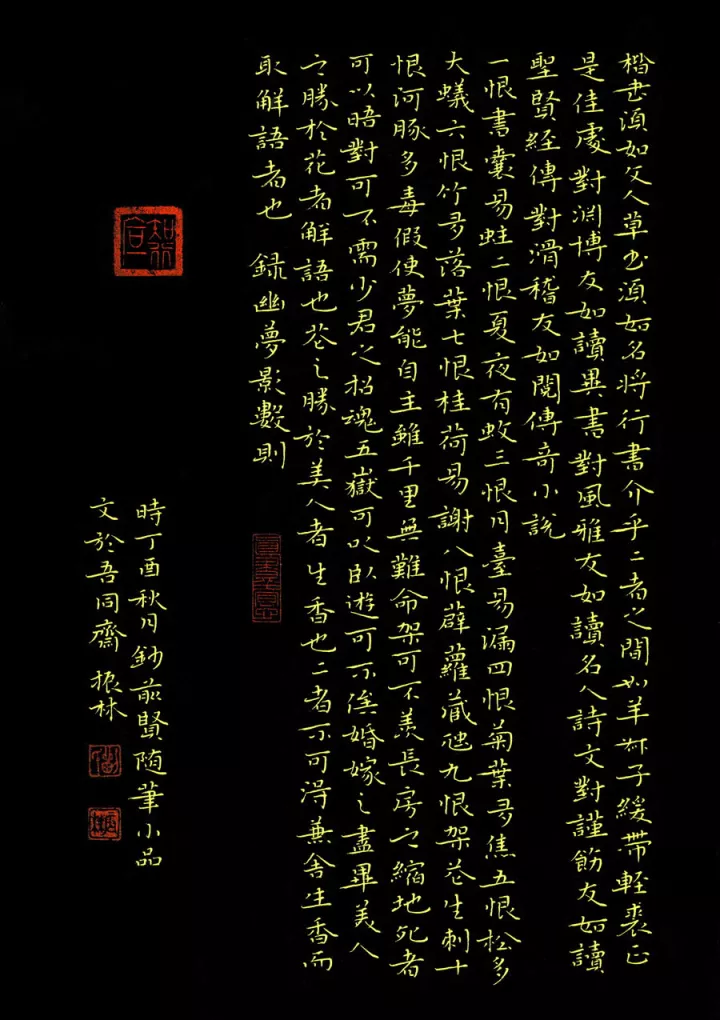 楷書須如文人草書須如名將行書介乎二者之間如羊叔子緩帶輕裘正
是佳處對淵博友如讀異書對風雅友如讀名人詩文對謹飭友如讀
聖賢經傳對滑稽友如閱傳奇小説
一恨書囊易蛀二恨夏夜有蚊三恨月臺易漏四恨菊葉多焦五恨松多
大蟻六恨竹多落葉七恨桂荷易謝八恨薜蘿藏虺九恨架花生刺十
恨河豚多毒假使夢能自主雖千里無難命架可不羨長房之縮地死者
可以晤對可不需少君之招魂五嶽可以臥遊可不俟婚嫁之盡畢美人
之勝於花者解語也花之勝於美人者生香也二者不可得兼舍生香而
取解語者也 錄幽夢影數則
時丁酉秋月鈔前賢随筆小品
文於吾同齋 振林